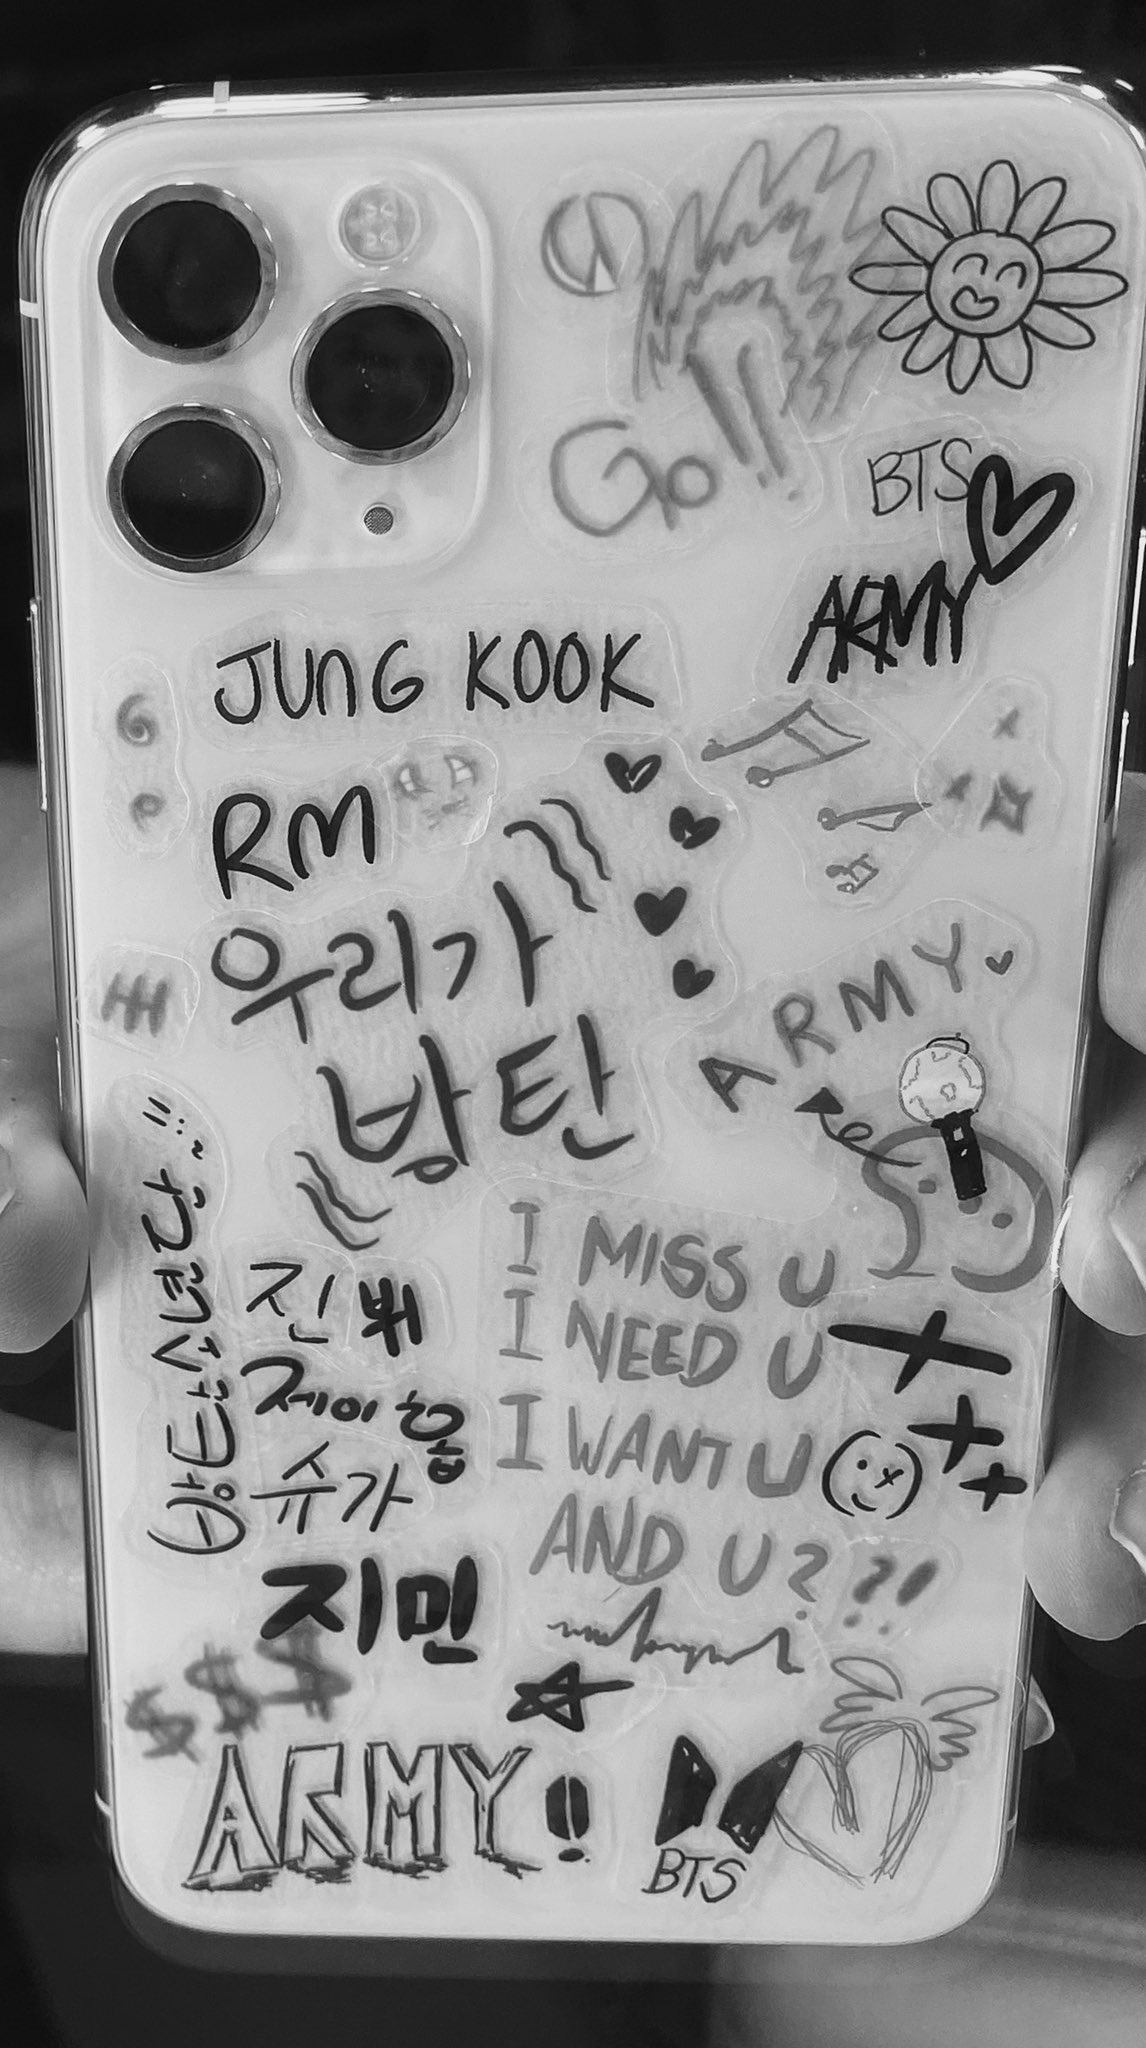 Go!!
BTS
ARMY
JUNG KOOK
RM
우리가
방탄
ARMY
방탄소년단~!!
진 뷔
제이홉
슈가
지민
I MISS U
I NEED U
I WANT U
AND U? ?!
$ $ $
ARMY!
BTS